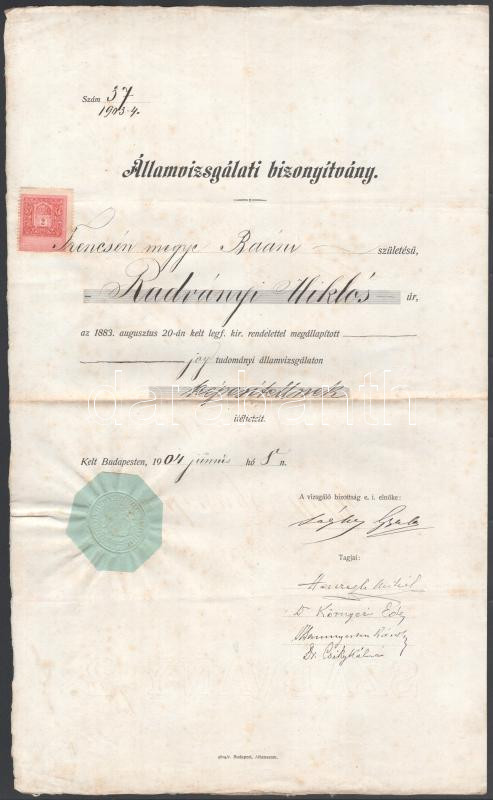 Szám 57
1903-4.
Államvizsgálati bizonyítvány.
2
Trencsén megye Baán születésű,
Radványi Miklós úr,
az 1883. augusztus 20-án kelt legf. kir. rendelettel megállapított
jog tudományi államvizsgálaton
képesítettnek
ítéltetett.
Kelt Budapesten, 1904 június hó 8 n.
A vizsgáló bizottság e. i. elnöke:
Gyula
Tagjai:
Herczegh Mihál
Dr Környei Ede
Károly
Dr. Csiky Kálmán
Budapest, Athenaeum.
darabanth